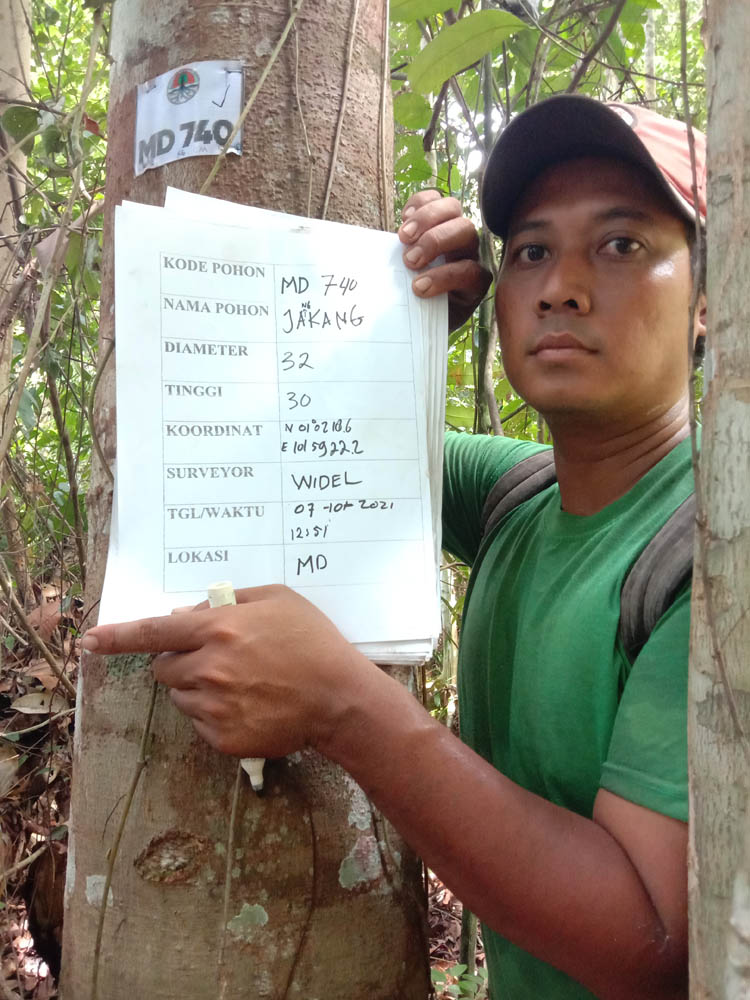 MD 740
KODE POHON MD 740
NAMA POHON JANGKANG
DIAMETER 32
TINGGI 30
KOORDINAT N 01°02 18.6
E 101 59 22.2
SURVEYOR WIDEL
TGL/WAKTU 07-10-2021
12:51
LOKASI MD